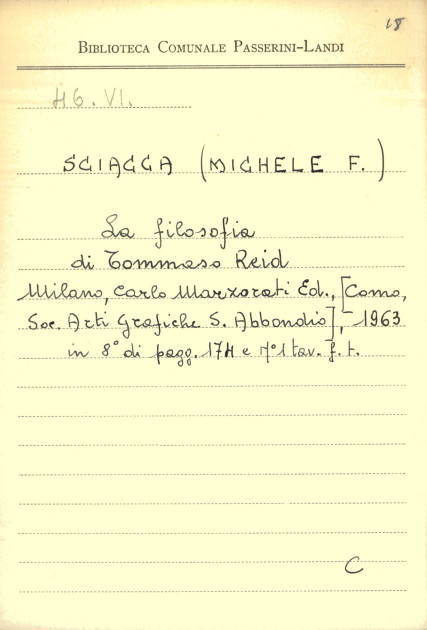 18
BIBLIOTECA COMUNALE PASSERINI-LANDI
H6. VI.
SCIACCA (MICHELE F.)
La filosofia
di Tommaso Reid
Milano, Carlo Marzorati Ed., [Como,
Soc. Arti Grafiche S. Abbondio], 1963
in 8° di pagg. 174 e n° 1 tav. f. t.
C